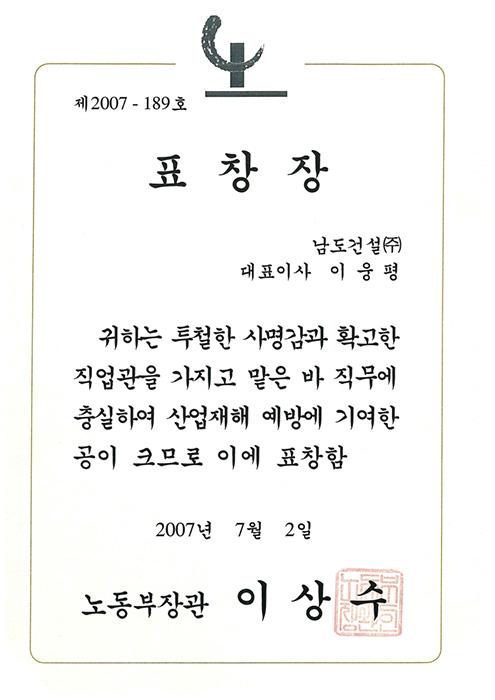 제2007 - 189호
표 창 장
남도건설㈜
대표이사 이 웅 평
귀하는 투철한 사명감과 확고한
직업관을 가지고 맡은 바 직무에
충실하여 산업재해 예방에 기여한
공이 크므로 이에 표창함
2007년 7월 2일
노동부장관 이 상 수